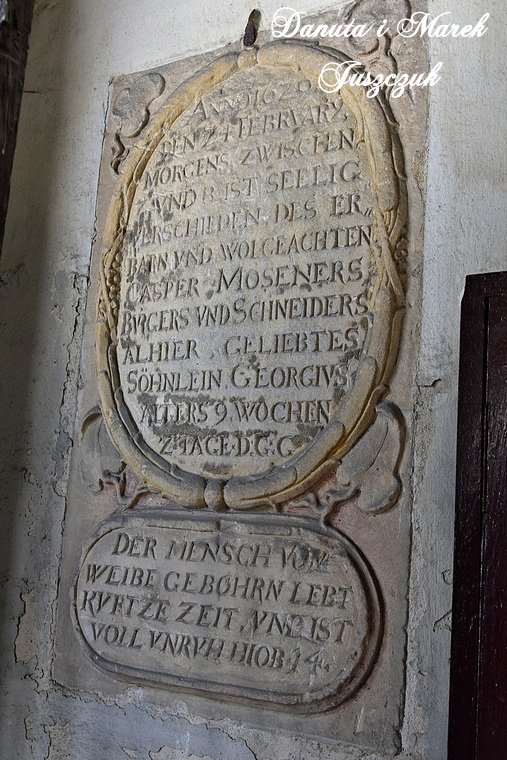 Danuta i Marek
Juszczuk
ANNO 1629
DEN 24 FEBRUARY
MORGENS ZWISCHEN
VND IST SEELIG
VERSCHIEDEN DES ER,,
BARN VND WOLGEACHTEN
CASPER MOSENERS
BVRGERS VND SCHNEIDERS
ALHIER, GELIEBTES
SÖHNLEIN GEORGIVS
ALTERS 9 WOCHEN
2 TAGE·D·G·G
DER MENSCH VOM
WEIBE GEBOHRN LEBT
KVRTZE ZEIT, VND IST
VOLL VNRVH HIOB 14